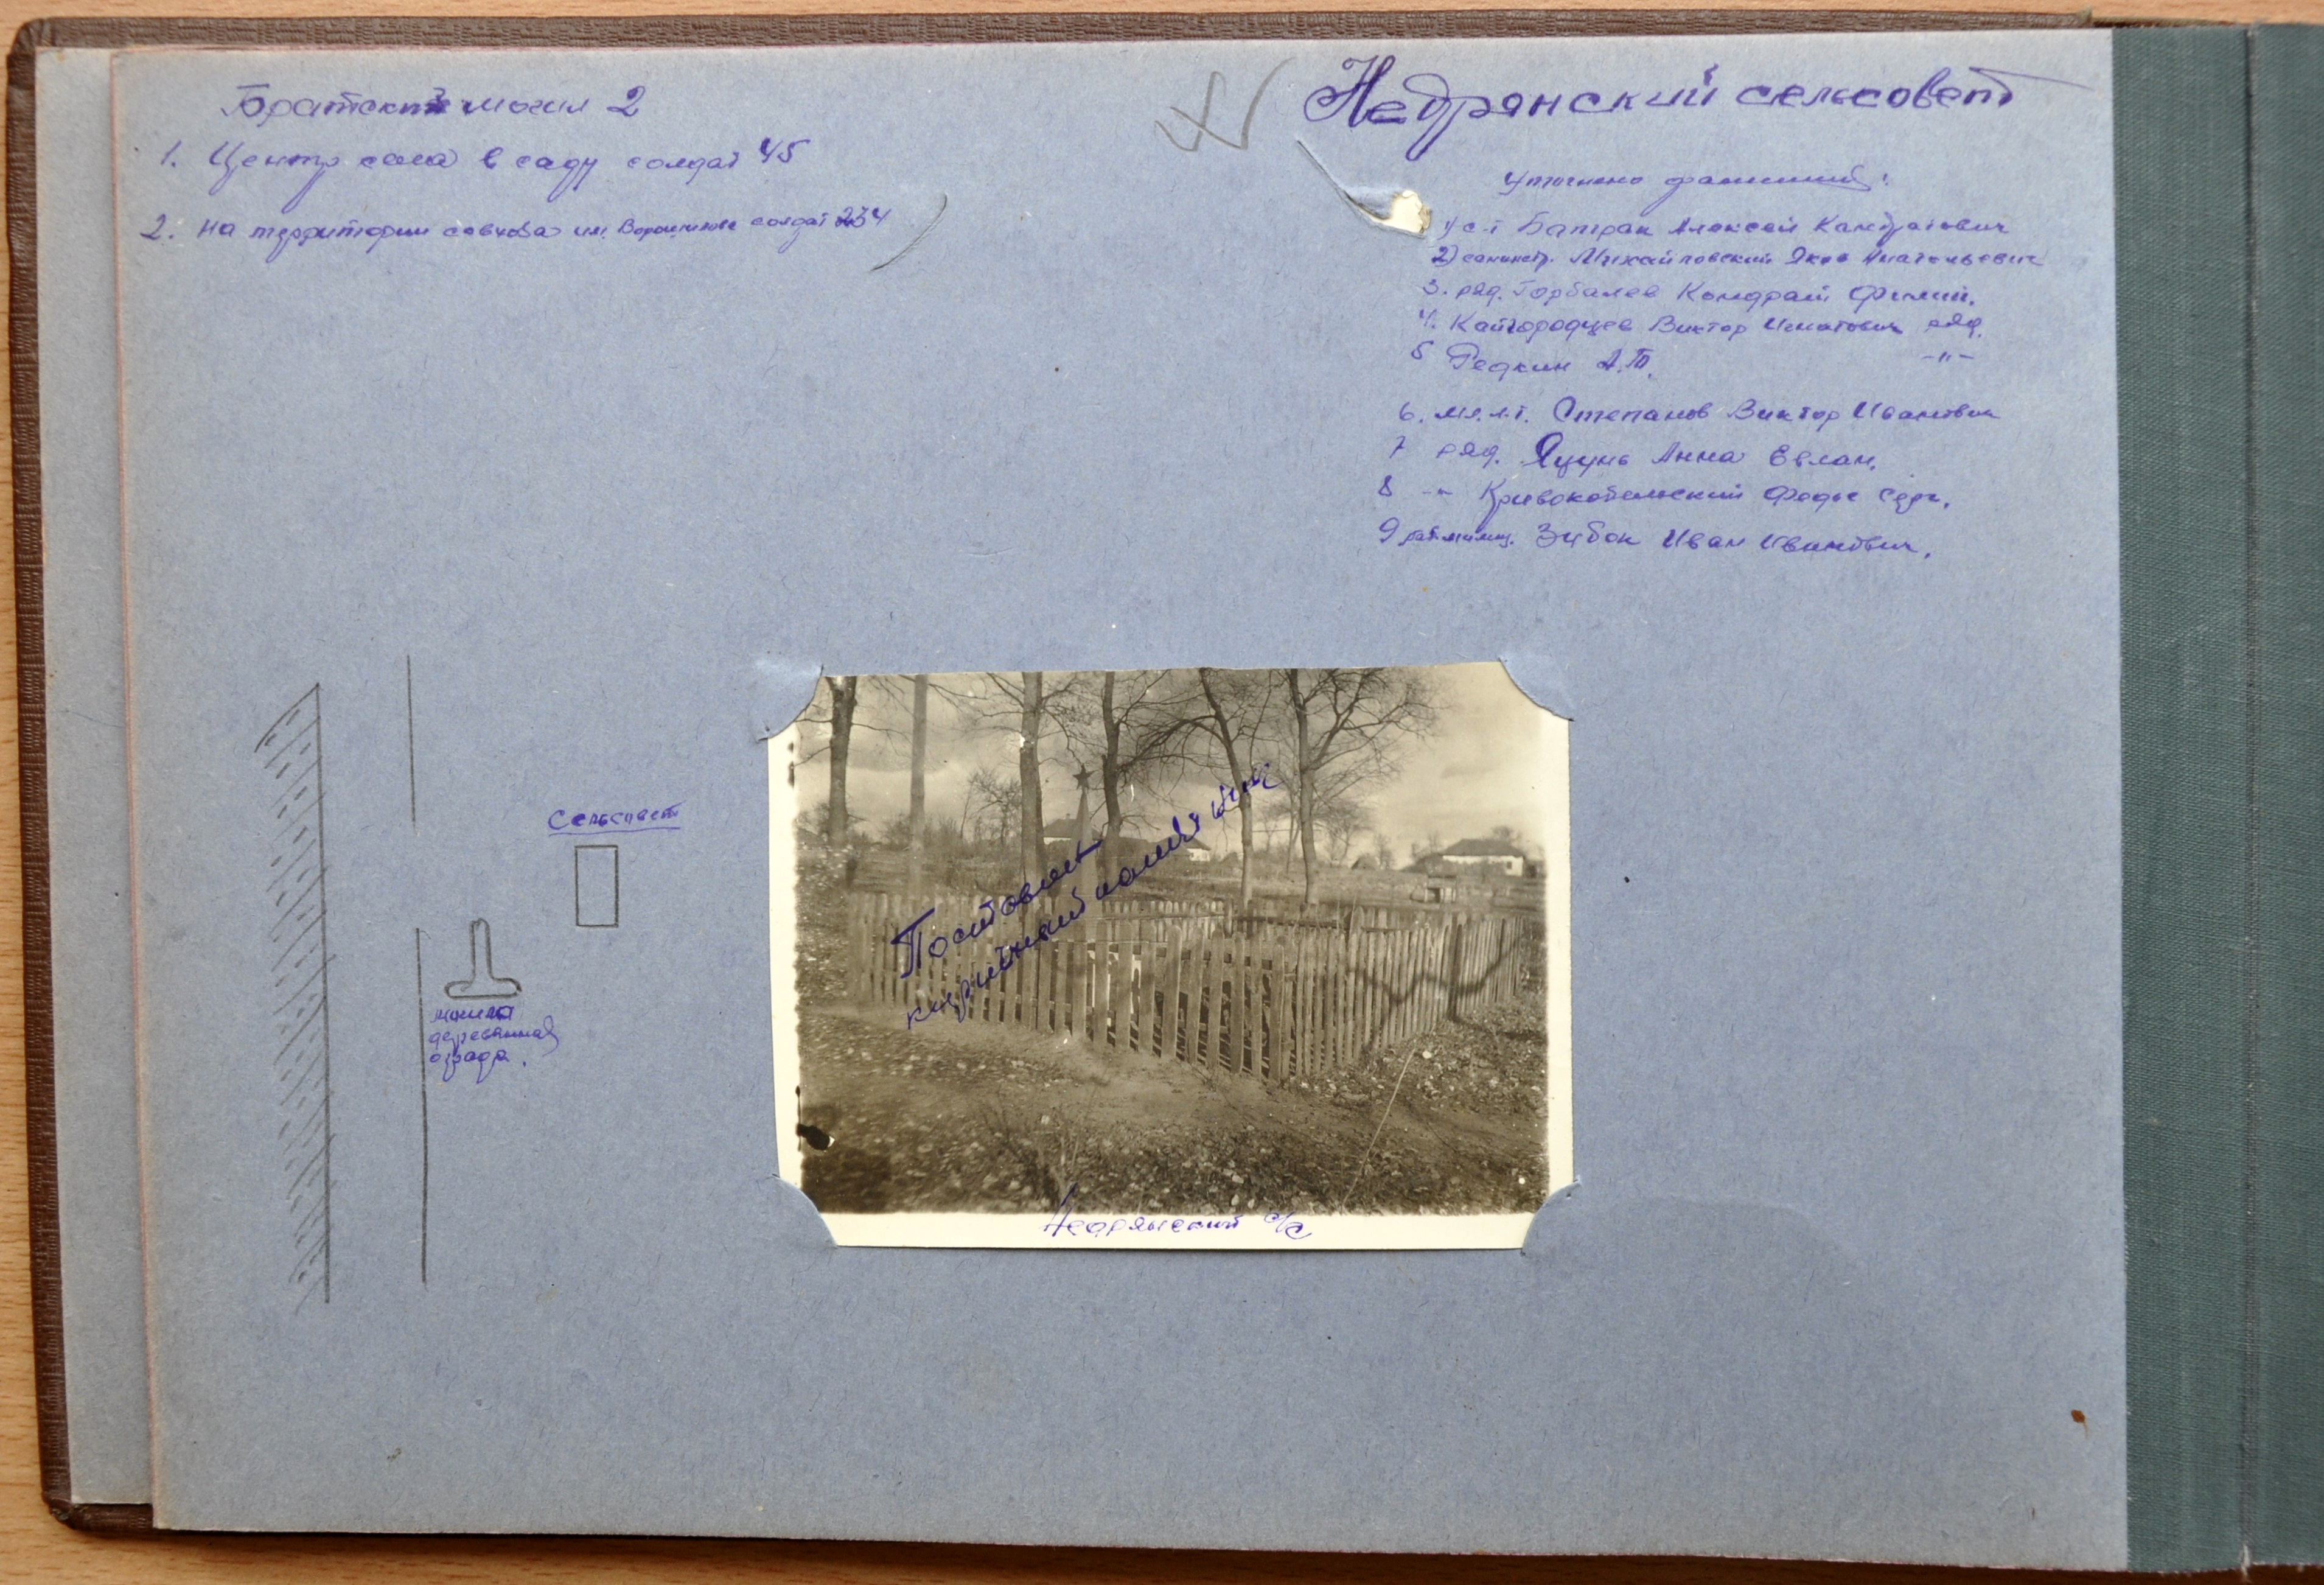 Братских могил 2
1. Центр села в саду солдат 45
2. на территории совхоза им. Ворошилова солдат 234
Недрянский сельсовет
Уточнено фамилий:
1) с-т Батрак Алексей Кандратович
2) Михайловский Яков Анатольевич
3. ряд. Горбалев Кондрат Филип.
4. Кайгородцев Виктор Игнатович ряд.
5 Редкин А.Т. -"-
6. мл.л-т. Степанов Виктор Иванович
7 ряд. Яцунь Анна Евлам.
8 -"- Кривокобельский Федос Серг.
9 Зибок Иван Иванович.
Сельсовет
могила
деревянная
ограда.
Поставлен
кирпичный памятник
Недрянский с/с